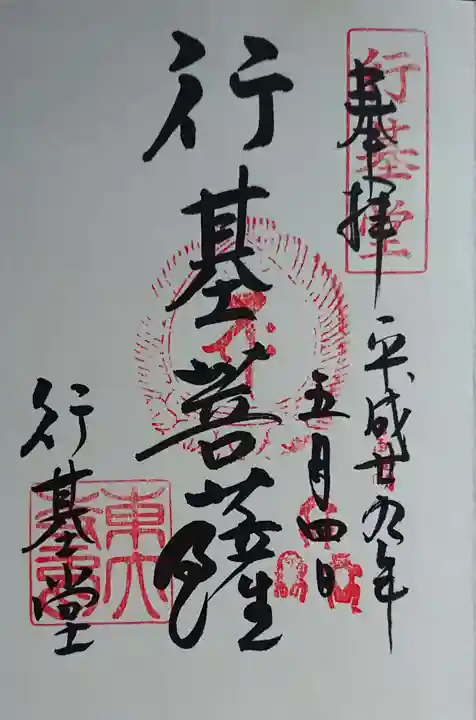 奉拝
行基堂
平成廿九年
五月四日
行基菩薩
行基堂